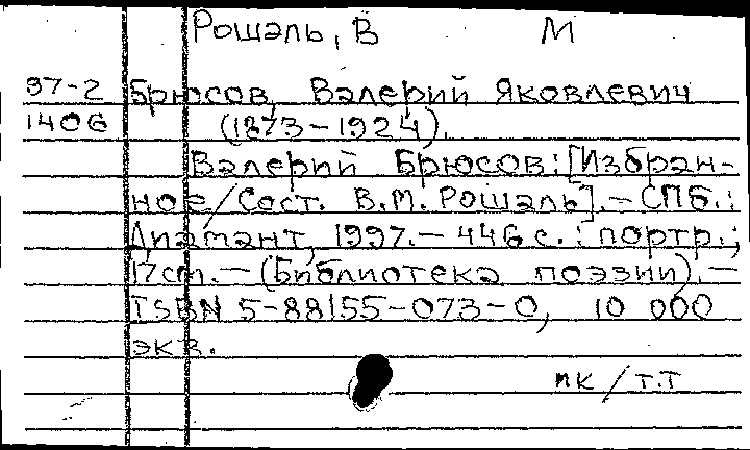 Рошаль, В М
97-2 Брюсов, Валерий Яковлевич
1406 (1873-1924).
Валерий Брюсов: [Избран-
ное/Сост. В.М. Рошаль]. - СПб.:
Диамант, 1997. - 446 с.: портр.;
17см. - (Библиотека поэзии). -
ISBN 5-88155-073-0, 10 000
экз.
пк/т.т